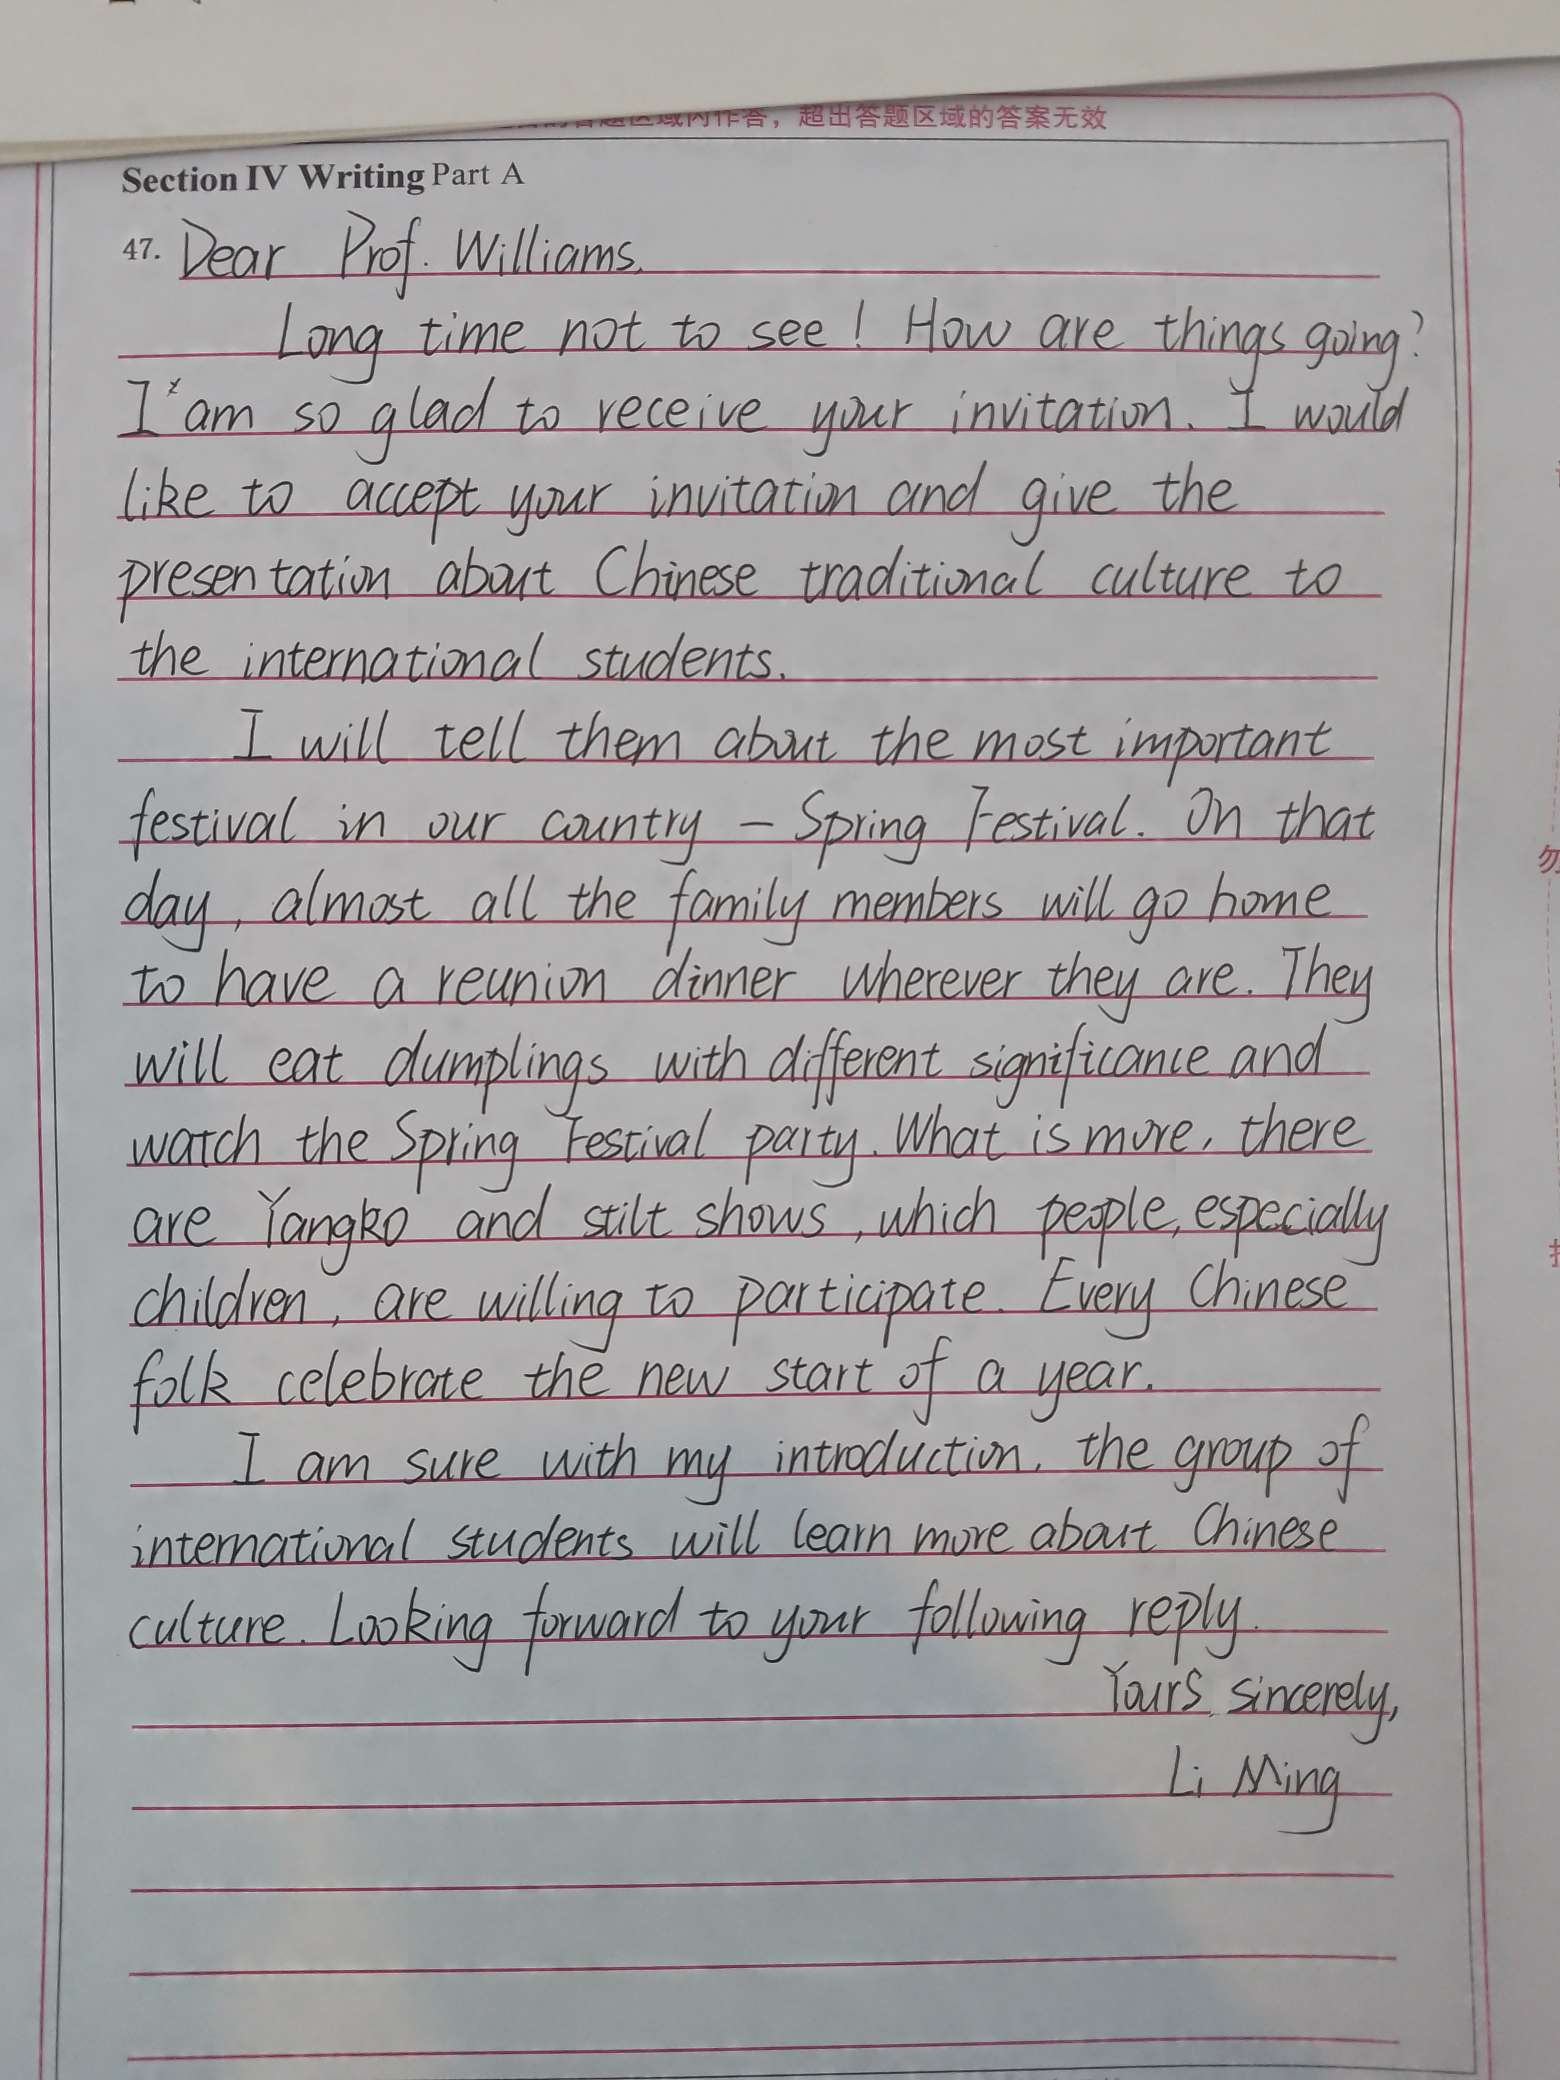 超出答题区域的答案无效
Section IV Writing Part A
47. Dear Prof. Williams,
Long time not to see! How are things going?
I am so glad to receive your invitation. I would
like to accept your invitation and give the
presentation about Chinese traditional culture to
the international students.
I will tell them about the most important
festival in our country - Spring Festival. On that
day, almost all the family members will go home
to have a reunion dinner wherever they are. They
will eat dumplings with different significance and
watch the Spring Festival party. What is more, there
are Yangko and stilt shows, which people, especially
children, are willing to participate. Every Chinese
folk celebrate the new start of a year.
I am sure with my introduction, the group of
international students will learn more about Chinese
culture. Looking forward to your following reply.
Yours sincerely,
Li Ming